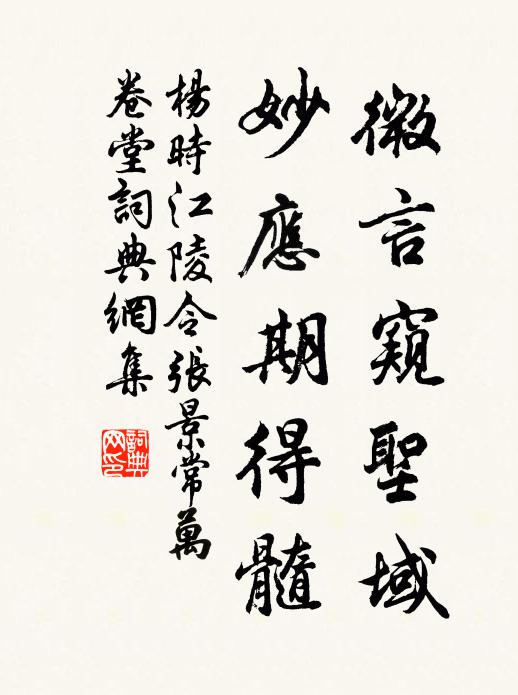 微言窺聖域
妙應期得髓
楊時江陵令張景常萬
卷堂詞典網集
詞典
网印